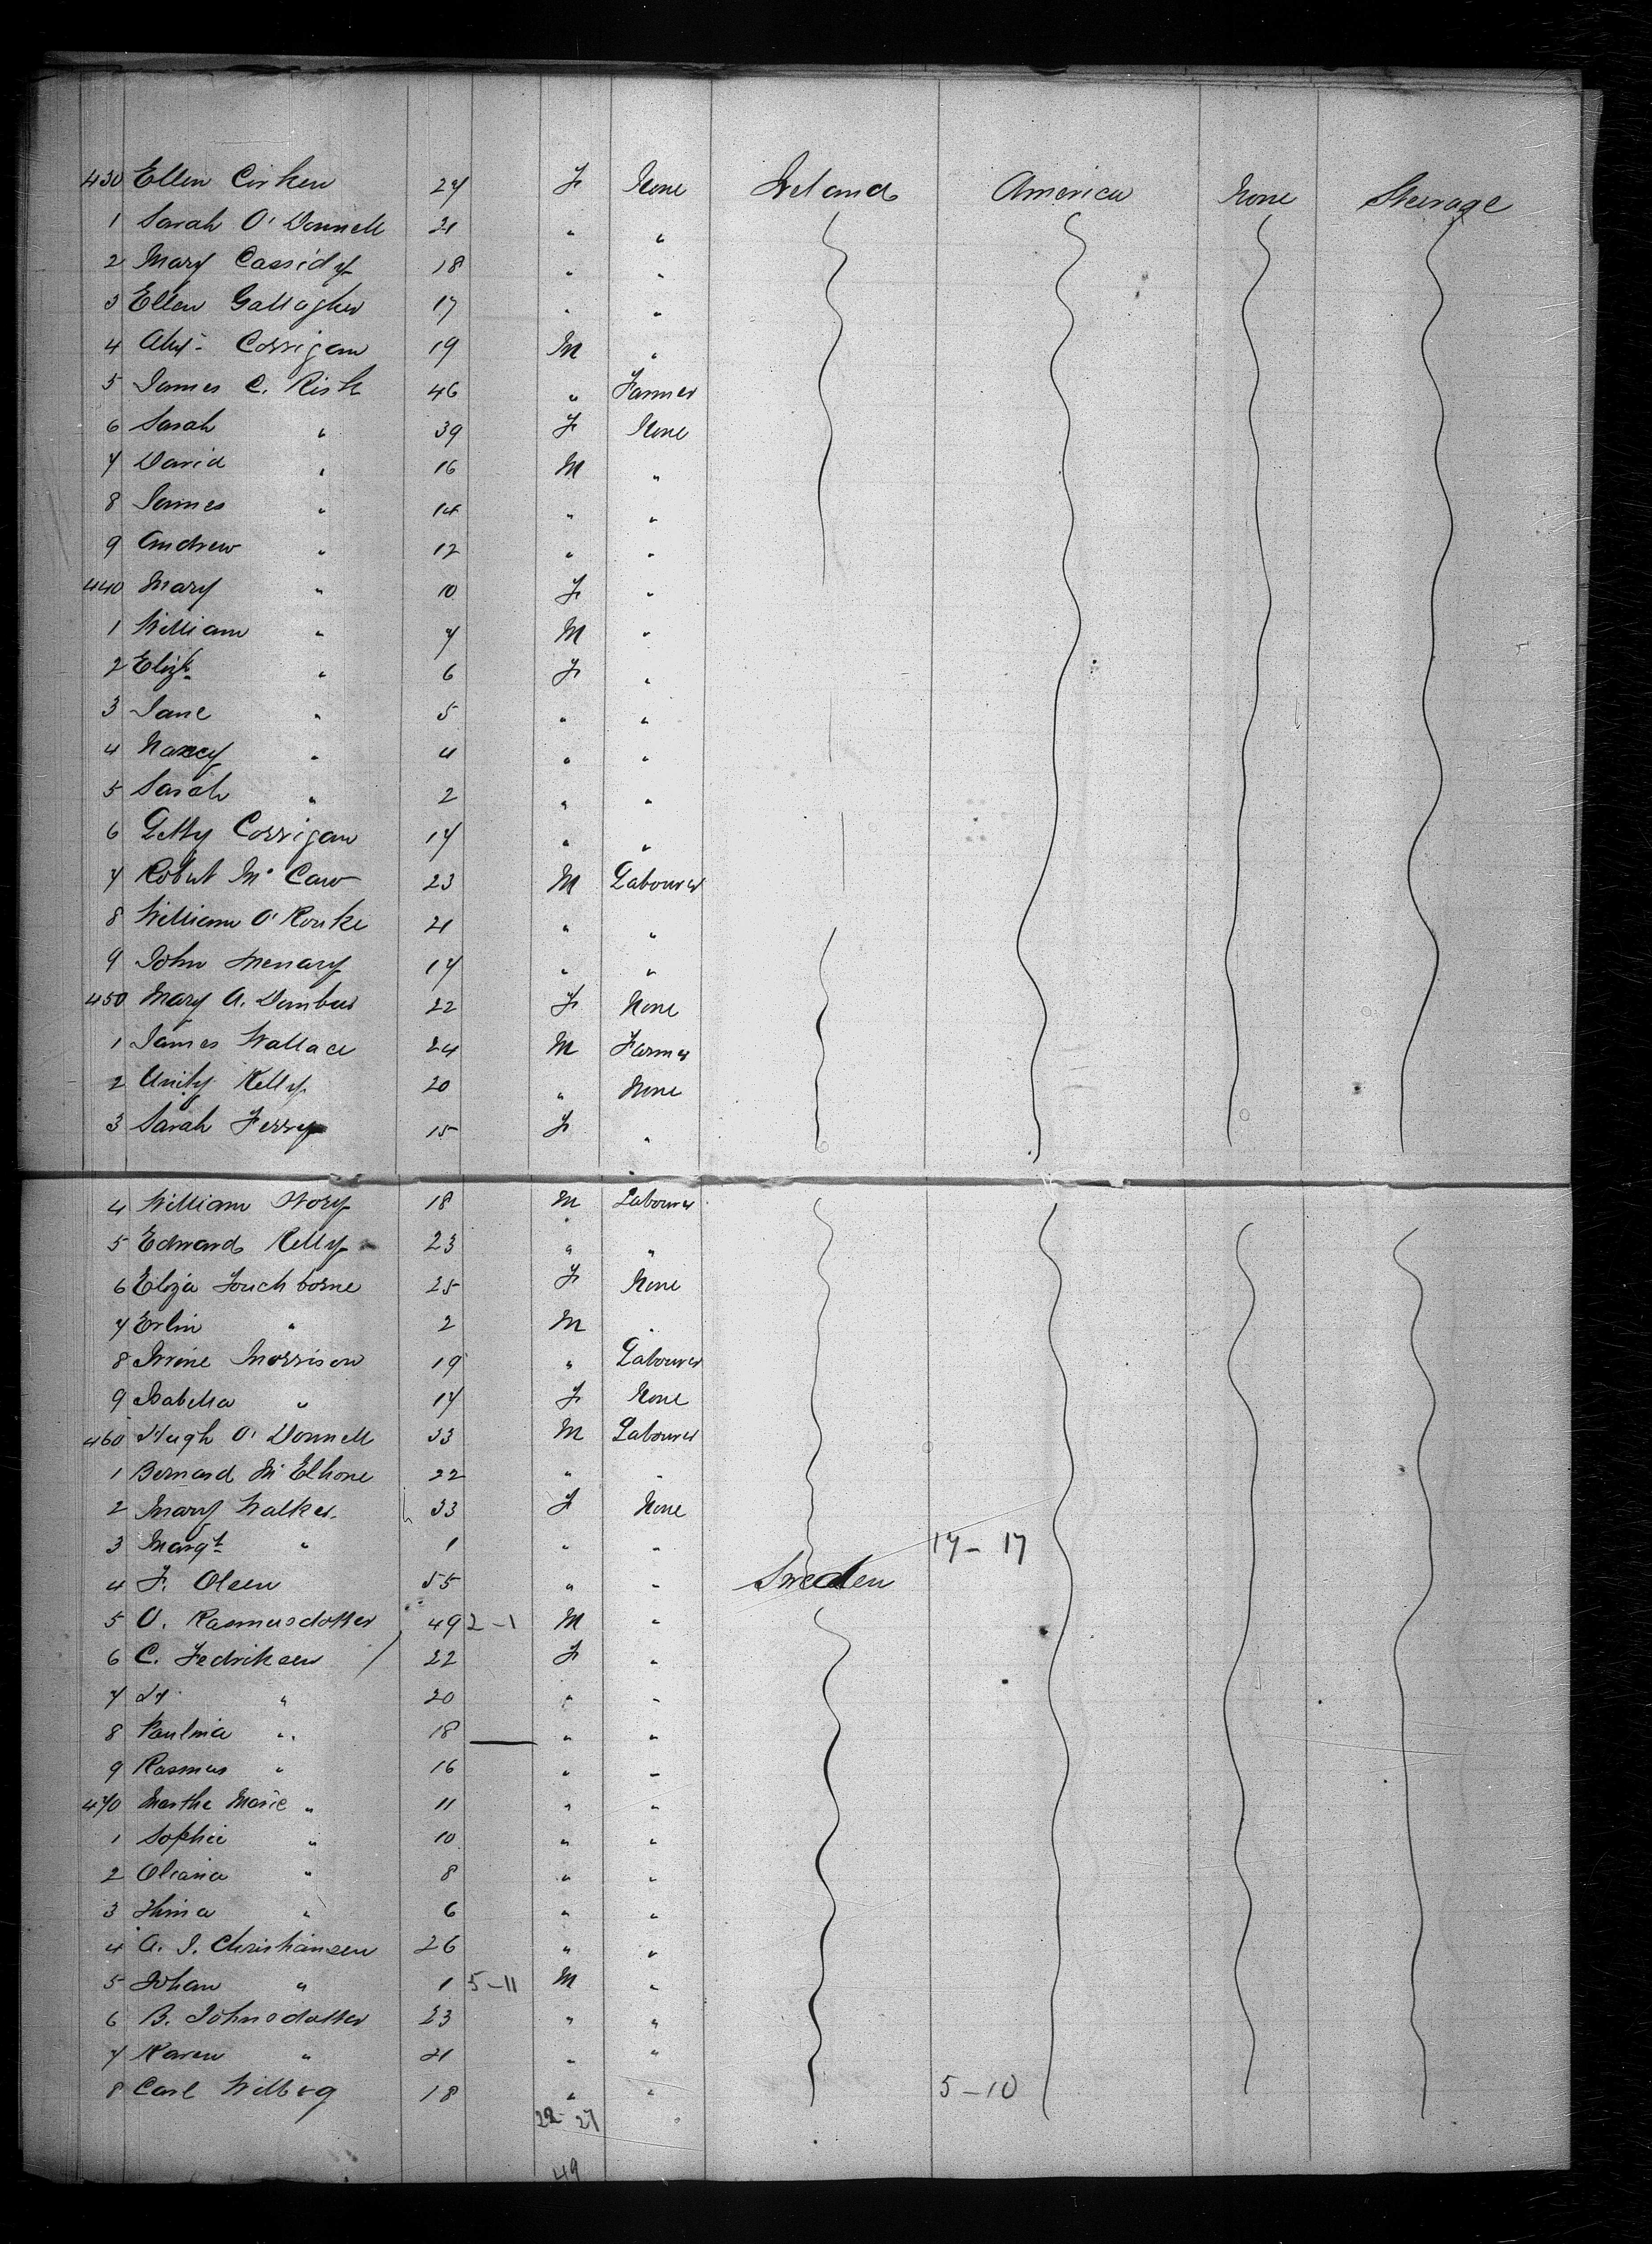 430 Ellen Cirken 24 F None Ireland America None Steerage
1 Sarah O'Donnell 21 " "
2 Mary Cassidy 18 " "
3 Ellen Gallagher 17 " "
4 Alexr Corrigan 19 M "
5 James C. Risk 46 " Farmer
6 Sarah " 39 F None
7 David " 16 M "
8 James " 14 " "
9 Andrew " 12 " "
440 Mary " 10 F "
1 William " 7 M "
2 Elizh " 6 F "
3 Jane " 5 " "
4 Nancy " 4 " "
5 Sarah " 2 " "
6 Letty Corrigan 17 " "
7 Robert Mc Caw 23 M Labourer
8 William O'Rourke 21 " "
9 John Menary 17 " "
450 Mary A. Dunbar 22 F None
1 James Wallace 24 M Farmer
2 Unity Kelly 20 " None
3 Sarah Ferry 15 F "
4 William Story 18 M Labourer
5 Edward Kelly 23 " "
6 Eliza Touchborne 25 F None
7 Erlin " 2 M "
8 Irvine Morrison 19 " Labourer
9 Isabella " 17 F None
460 Hugh O'Donnell 33 M Labourer
1 Bernard Mc Elhone 22 " "
2 Mary Walker 33 F None
3 Margt " 1 " " 17-17
4 F. Olsen 55 " " Sweden
5 O. Rasmusdotter 49 2-1 M "
6 C. Fedriksen 22 F "
7 " 20 " "
8 Paulina " 18 " "
9 Rasmus " 16 " "
470 Marthe Marie " 11 " "
1 Sophie " 10 " "
2 Oliana " 8 " "
3 " 6 " "
4 A. J. Christiansen 26 " "
5 Johan " 1 5-11 M "
6 B. Johnsdotter 23 " "
7 Karen " 21 " "
8 Carl Wilbrg 18 " " 5-10
22-27
49